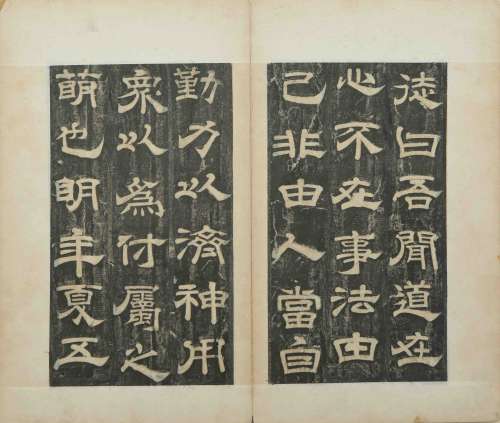 徒曰吾聞道在
心不在事法由
己非由人當自
勤力以濟神用
衆以爲付屬之
萌也明年夏五